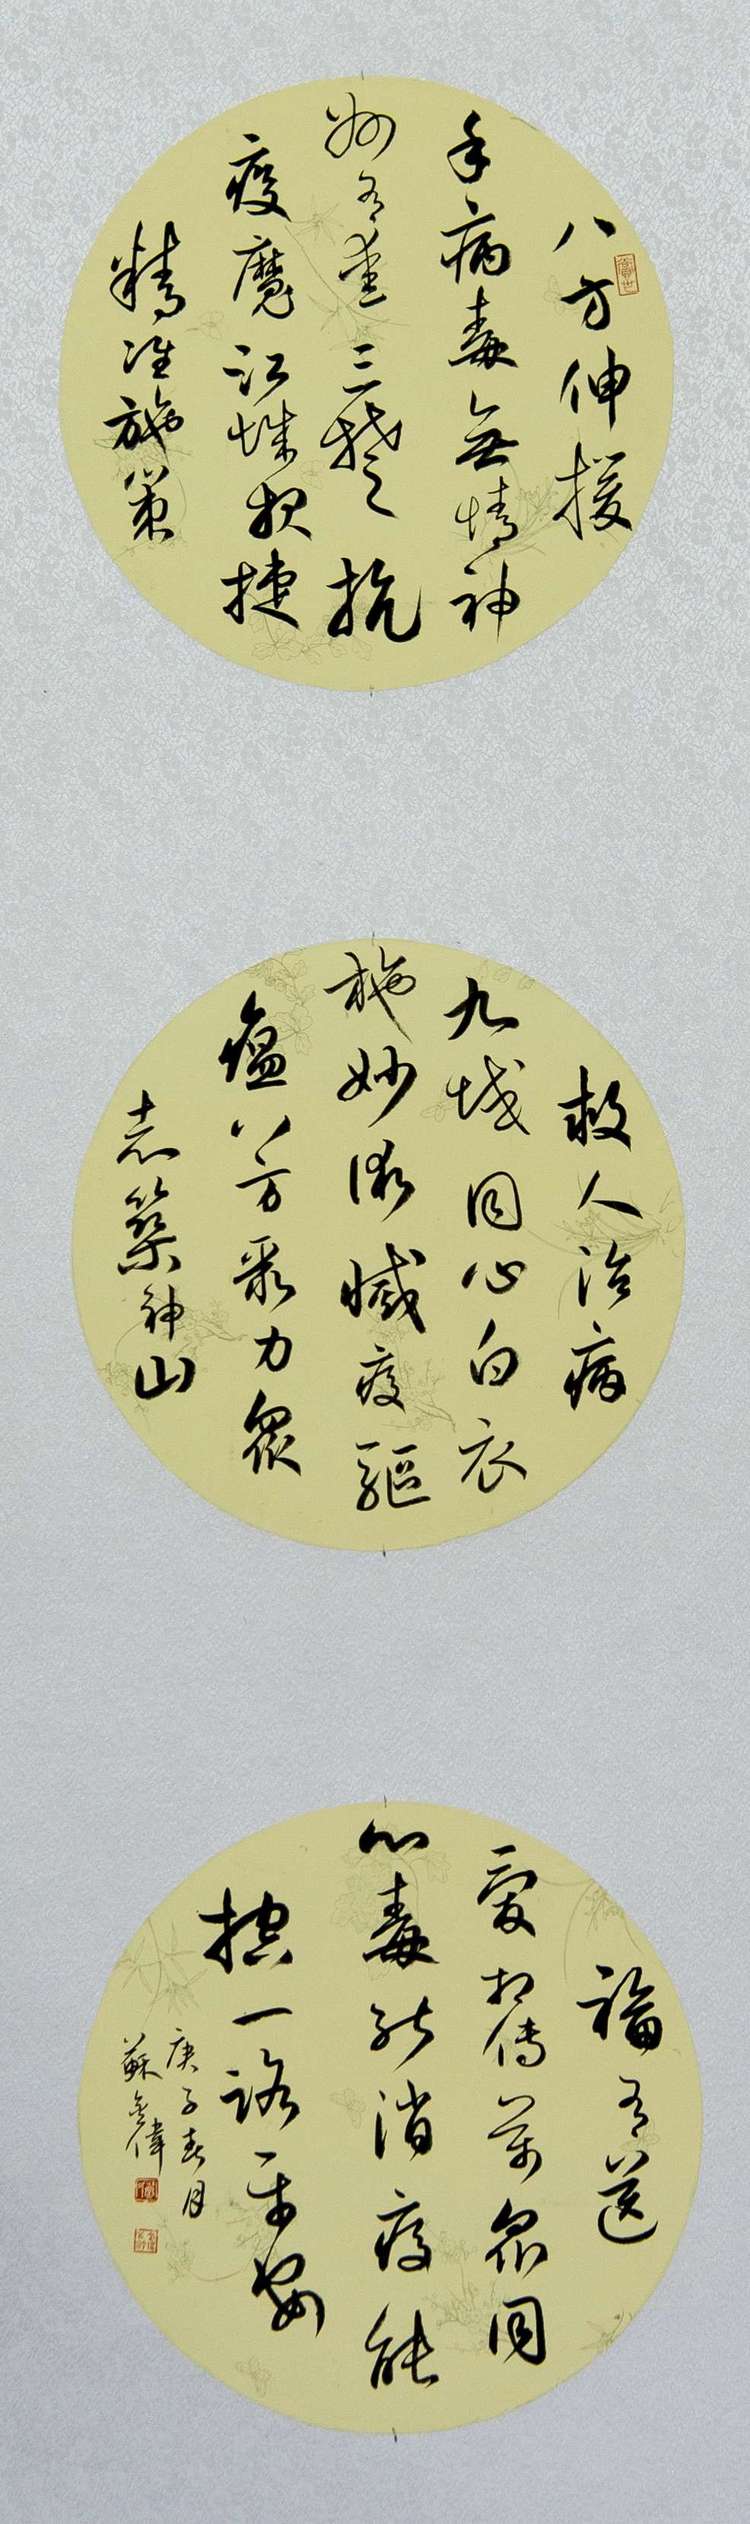 八方伸援
手病毒無情神
州有愛三楚抗
疫魔江城報捷
精准施策
救人治病
九域同心白衣
施妙術滅疫驅
瘟八方聚力眾
志築神山
福有送
愛相傳萬眾同
心毒能消疫能
控一路平安
庚子春月
蘇金偉